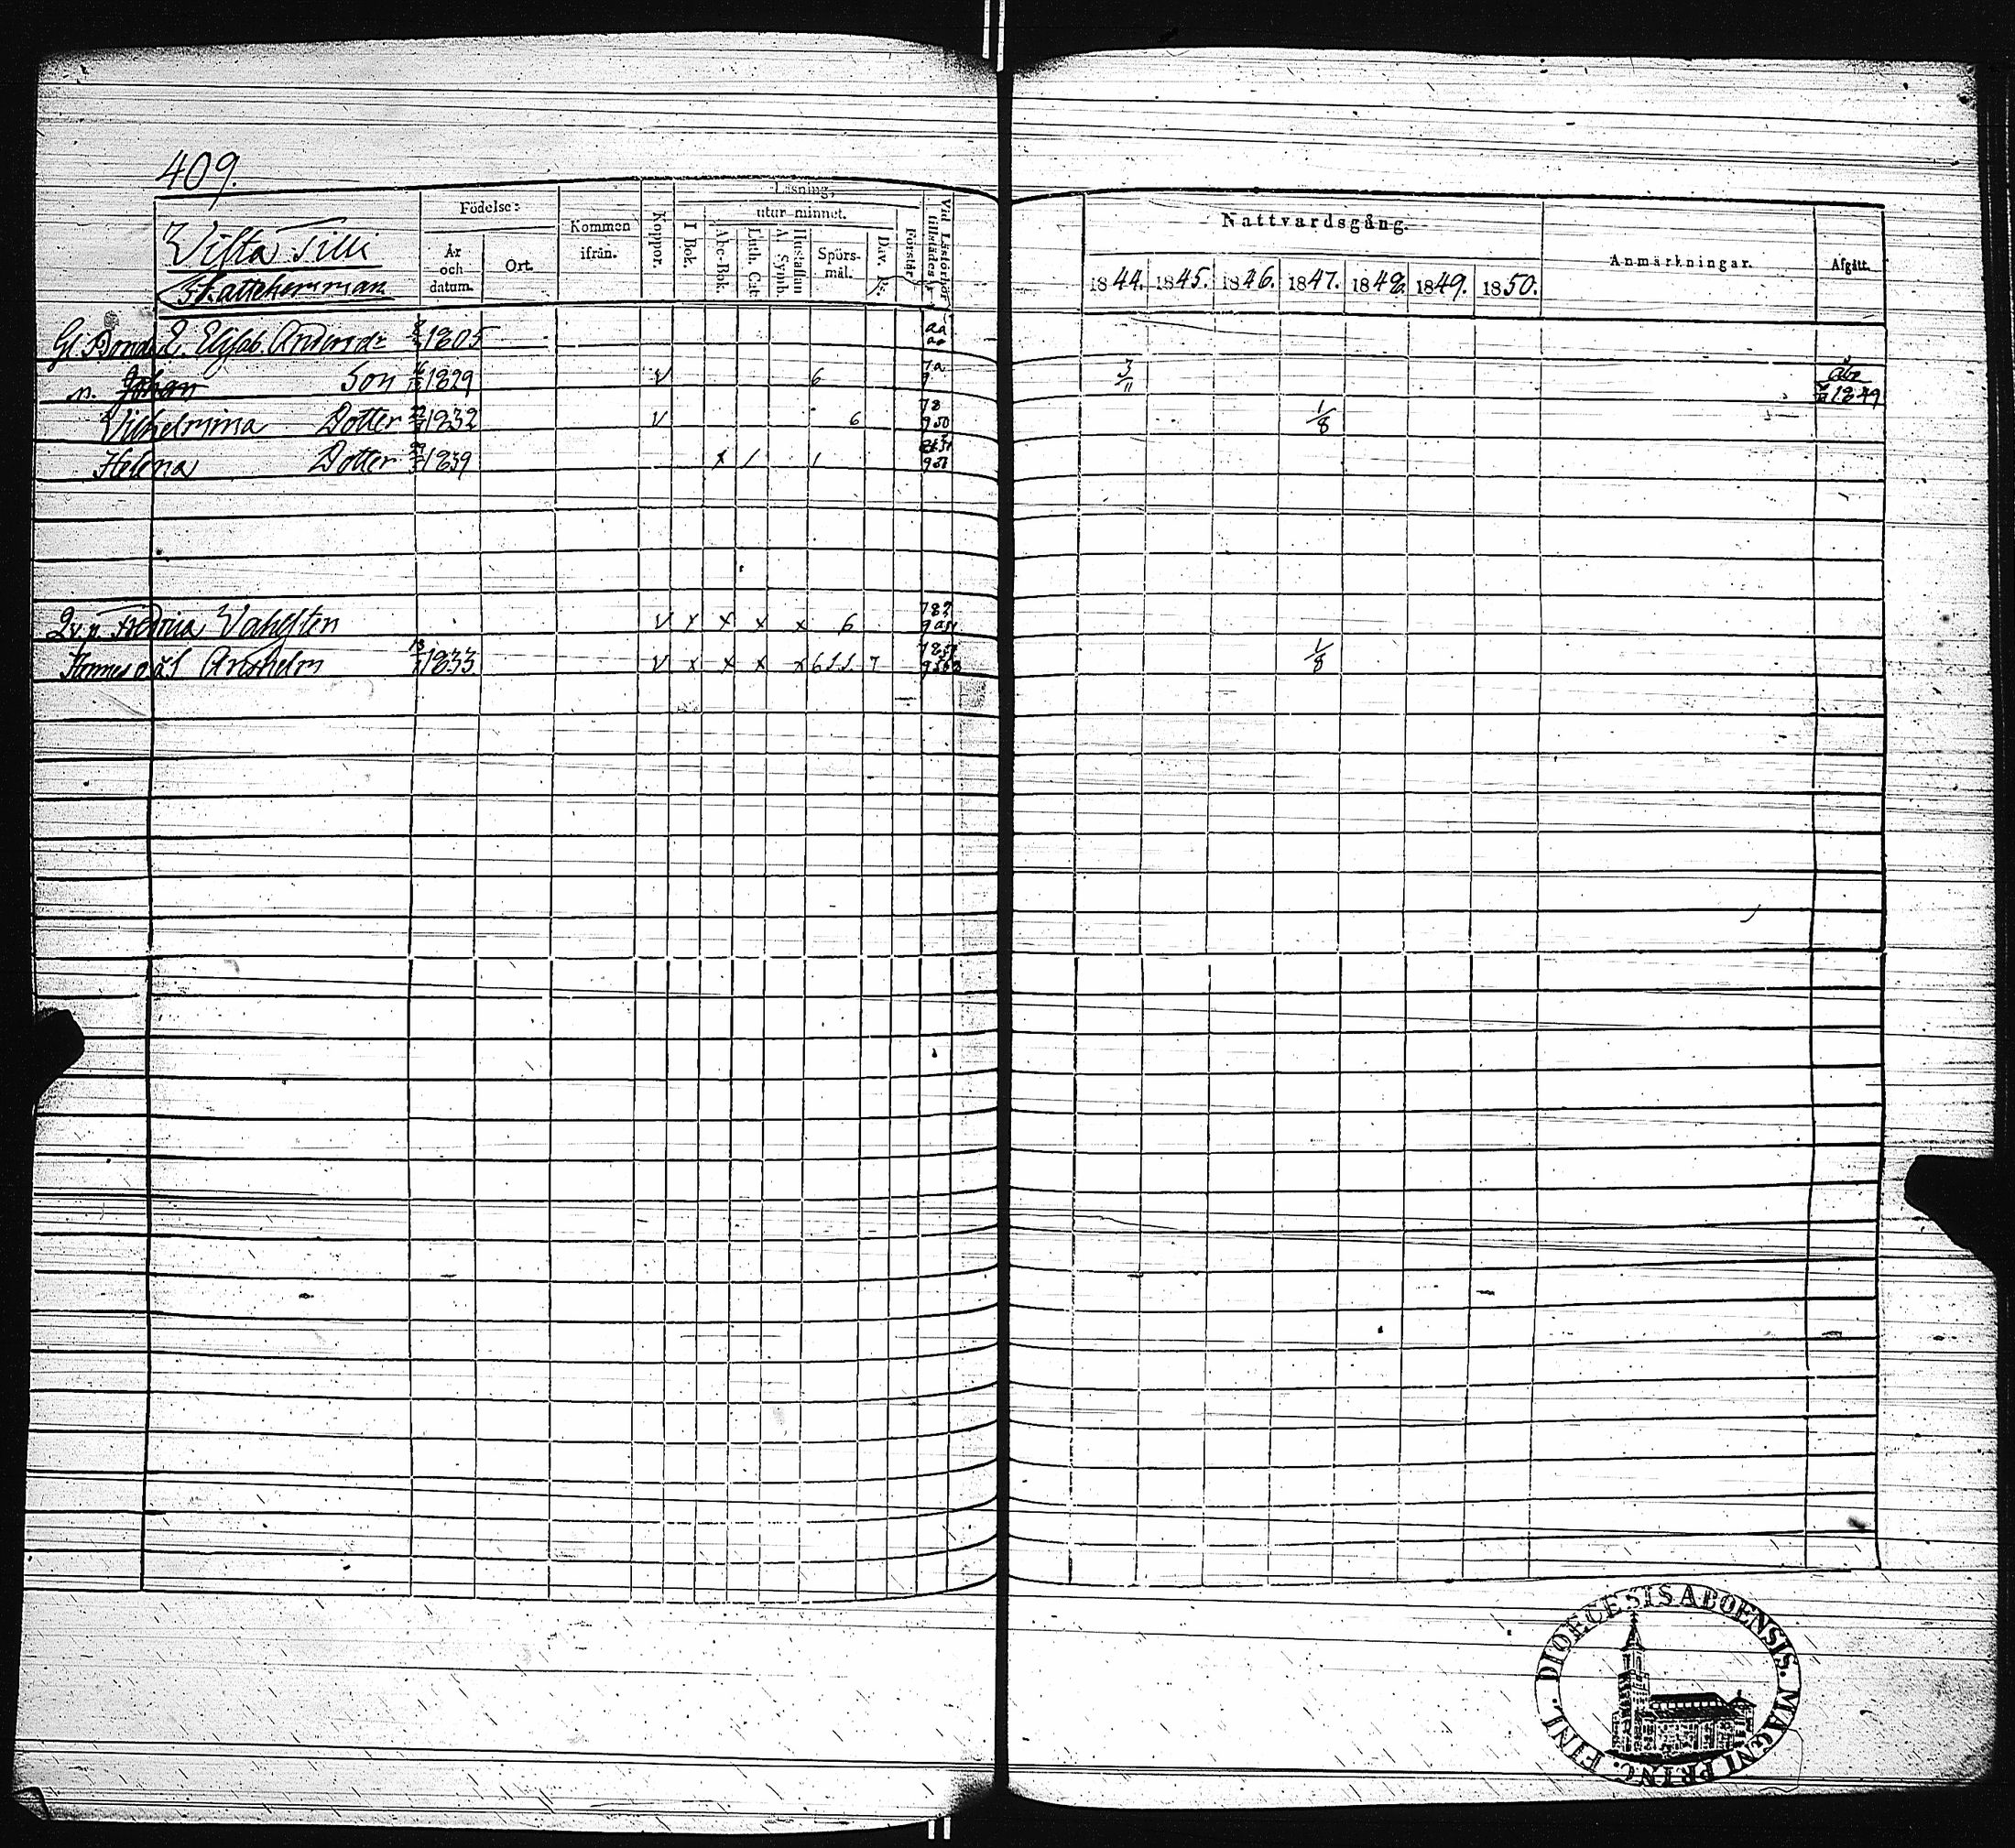 409.
Läsning,
Födelse-
utur minnet.
Nattvardsgång.
Vista Tilli
Kommen ifrån.
Koppor.
I Bok.
Abc-Bok.
Luth. Cat.
Hustaflan A. Symb.
Spörs-mål.
Dav. Ps.
Förstår.
Vid Läsförhör tillstädes
År och datum.
Ort.
Anmärkningar.
Afgått.
Skattehemman
1844. 1845. 1846. 1847. 1848. 1849. 1850.
Gl. Bond. E. Elisab. Andersdr 1805 aa
n. Johan Son 1829 v 6 7a 9 3/11 Åbo 1849
Vilhelmina Dotter 1832 v 6 78 950 1/8
Helena Dotter 1839 x / 1
Qv.p. Fredrica Vahlsten v x x x x 6
Anshelm 1833 v x x x x 6 7 1/8
DIOECESIS ABOENSIS. MAGNI PRINC. FINL.